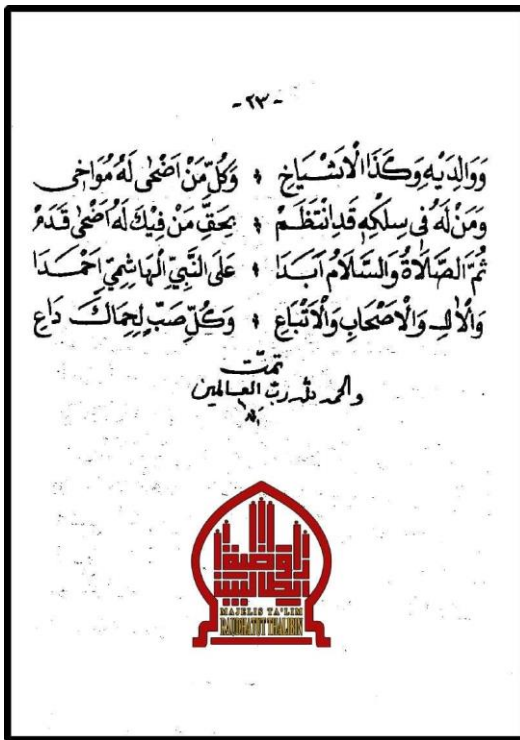 -٢٣-
وَوَالِدَيْهِ وَكَذَا الْاَشْيَاخِ ۞ وَكُلِّ مَنْ اَضْحٰى لَهُ مُوَاخِى
وَمَنْ لَهُ فِى سِلْكِهِ قَدِ انْتَظَمْ ۞ بِحَقِّ مَنْ فِيْكَ لَهُ اَضْحٰى قَدَمْ
ثُمَّ الصَّلَاةُ وَالسَّلَامُ اَبَدَا ۞ عَلَى النَّبِيِّ الْهَاشِمِيِّ اَحْمَدَا
وَالْاٰلِ وَالْاَصْحَابِ وَالْاَتْبَاعِ ۞ وَكُلِّ صَبٍّ لِحِمَاكَ دَاعِ
تمّت
والحمد لله ربّ العالمين
روضة
الطالبين
MAJELIS TA'LIM
RAUDHATUT THALIBIN